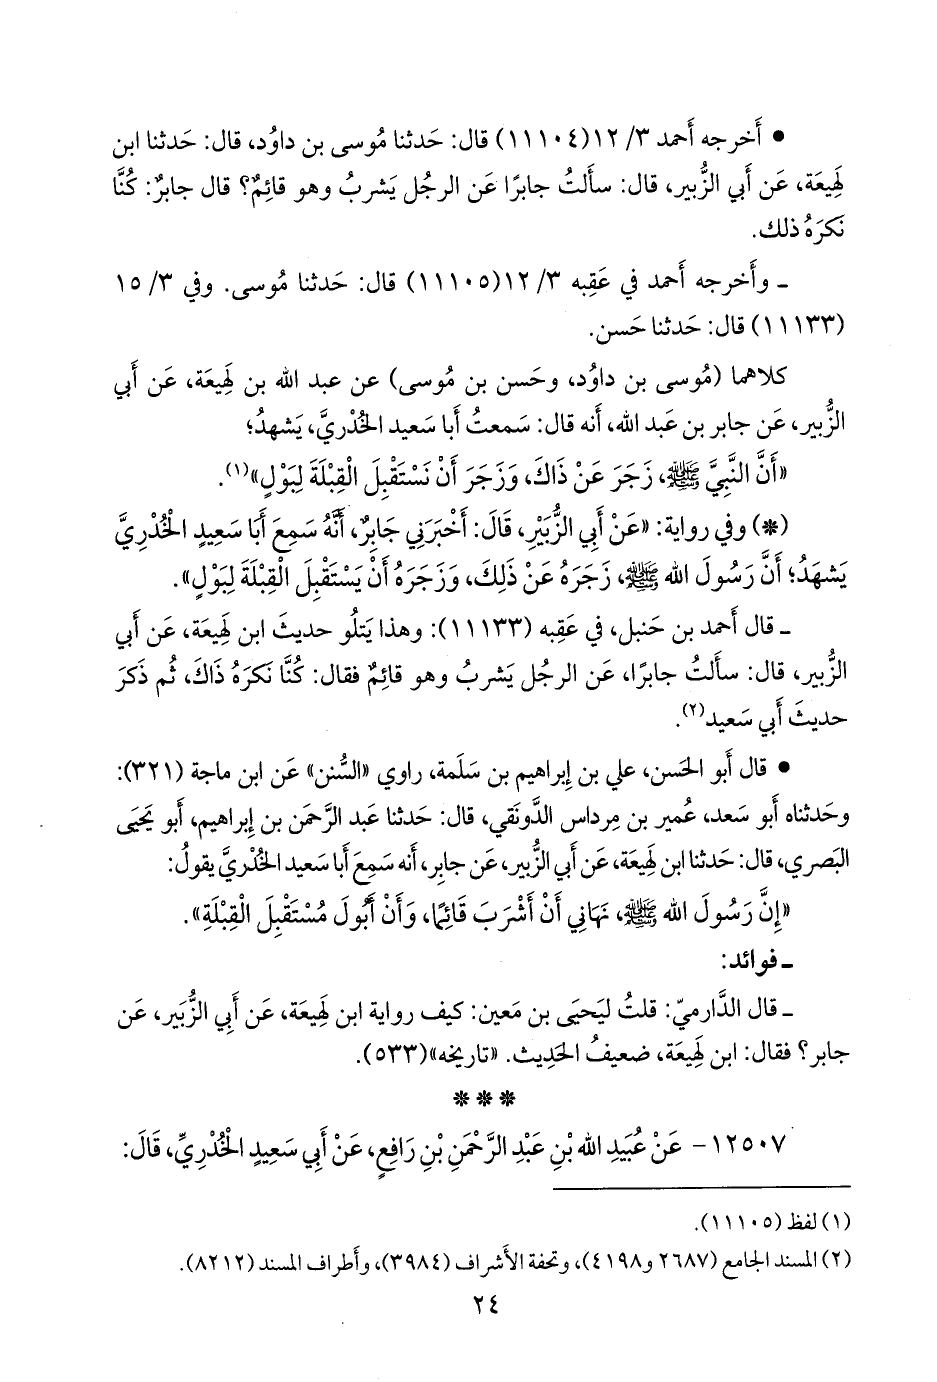 • أَخرجه أَحمد ٣/ ١٢(١١١٠٤) قال: حَدثنا مُوسى بن داوُد، قال: حَدثنا ابن
لَهِيعَة، عَن أَبي الزُّبير، قال: سأَلتُ جابرًا عَن الرجُل يَشربُ وهو قائِمٌ؟ قال جابرٌ: كُنَّا
نَكرَهُ ذلك.
ـ وأَخرجه أَحمد في عَقِبه ٣/ ١٢(١١١٠٥) قال: حَدثنا مُوسى. وفي ٣/ ١٥
(١١١٣٣) قال: حَدثنا حَسن.
كلاهما (مُوسى بن داوُد، وحَسن بن مُوسى) عن عبد الله بن لَهِيعَة، عَن أَبي
الزُّبير، عَن جابر بن عَبد الله، أَنه قال: سَمعتُ أَبا سَعيد الخُدْريَّ، يَشهدُ؛
«أَنَّ النَّبِيَّ ﷺ، زَجَرَ عَنْ ذَاكَ، وَزَجَرَ أَنْ نَسْتَقْبِلَ الْقِبْلَةَ لِبَوْلٍ»(١).
(*) وفي رواية: «عَنْ أَبِي الزُّبَيْرِ، قَالَ: أَخْبَرَنِي جَابِرٌ، أَنَّهُ سَمِعَ أَبَا سَعِيدٍ الْخُدْرِيَّ
يَشهَدُ؛ أَنَّ رَسُولَ الله ﷺ، زَجَرَهُ عَنْ ذَلِكَ، وَزَجَرَهُ أَنْ يَسْتَقْبِلَ الْقِبْلَةَ لِبَوْلٍ».
ـ قال أَحمد بن حَنبل، في عَقِبه (١١١٣٣): وهذا يَتلُو حديثَ ابن لَهِيعَة، عَن أَبي
الزُّبير، قال: سأَلتُ جابرًا، عَن الرجُل يَشربُ وهو قائِمٌ فقال: كُنَّا نَكرَهُ ذاكَ، ثُم ذكَرَ
حديثَ أَبي سَعيد(٢).
• قال أَبو الحَسن، علي بن إِبراهيم بن سَلَمة، راوي «السُّنن» عَن ابن ماجة (٣٢١):
وحَدثناه أَبو سَعد، عُمير بن مِرداس الدَّونَقي، قال: حَدثنا عَبد الرَّحمَن بن إِبراهيم، أَبو يَحيَى
البَصري، قال: حَدثنا ابن لَهِيعَة، عَن أَبي الزُّبير، عَن جابِر، أَنه سَمِعَ أَبا سَعيد الخُدْريَّ يقولُ:
«إِنَّ رَسُولَ الله ﷺ، نَهَانِي أَنْ أَشْرَبَ قَائِمًا، وَأَنْ أَبُولَ مُسْتَقْبِلَ الْقِبْلَةِ».
ـ فوائد:
ـ قال الدَّارميّ: قلتُ ليَحيَى بن مَعين: كيف رواية ابن لَهِيعَة، عَن أَبي الزُّبَير، عَن
جابر؟ فقال: ابن لَهِيعَة، ضعيفُ الحَديث. «تاريخه»(٥٣٣).
* * *
١٢٥٠٧- عَنْ عُبَيدِ الله بْنِ عَبْدِ الرَّحْمَنِ بْنِ رَافِعٍ، عَنْ أَبِي سَعِيدٍ الْخُدْرِيِّ، قَالَ:
(١) لفظ (١١١٠٥).
(٢) المسند الجامع (٢٦٨٧ و٤١٩٨)، وتحفة الأَشراف (٣٩٨٤)، وأَطراف المسند (٨٢١٢).
٢٤